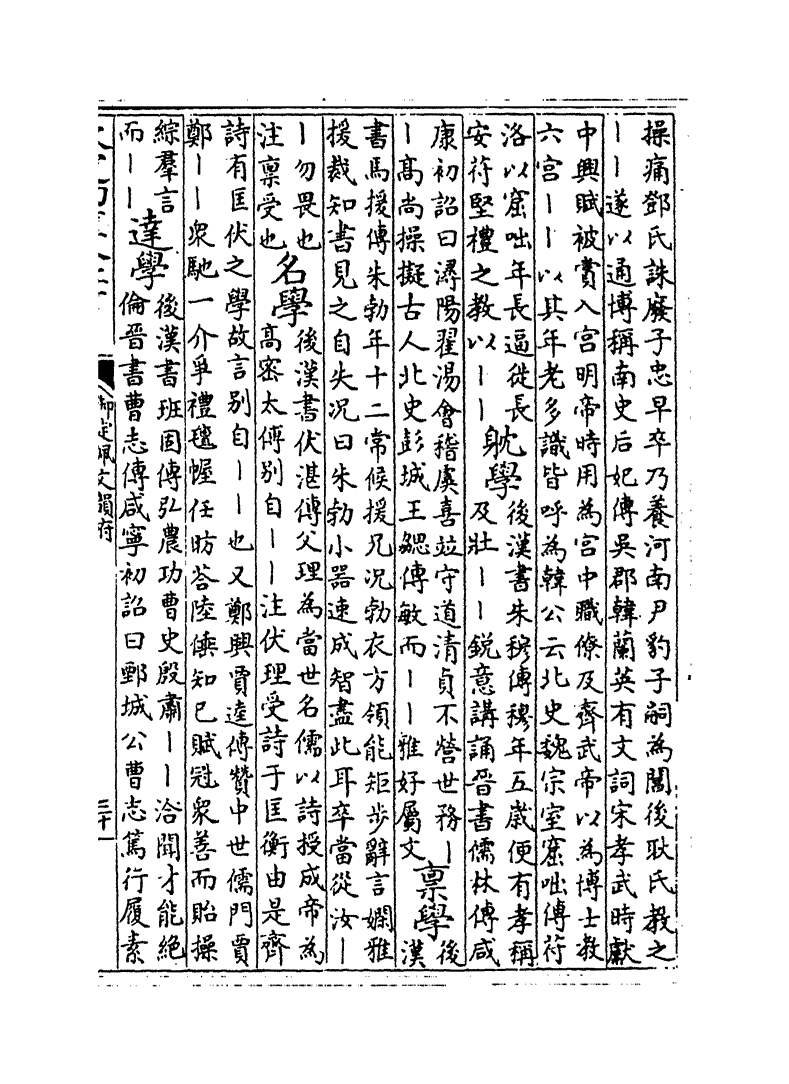 操痛鄧氏誅廢子忠早卒乃養河南尹豹子嗣為閶後耿氏教之
｜｜遂以通博稱南史后妃傳吳郡韓蘭英有文詞宋孝武時獻
中興賦被賞入宮明帝時用為宮中職僚及齊武帝以為博士教
六宮｜｜以其年老多識皆呼為韓公云北史魏宗室窟咄傳苻
洛以窟咄年長逼徙長
安苻堅禮之教以｜｜
耽學
後漢書朱穆傳穆年五歲便有孝稱
及壯｜｜銳意講誦晉書儒林傳咸
康初詔曰潯陽翟湯會稽虞喜並守道清貞不營世務｜
｜高尚操擬古人北史彭城王勰傳敏而｜｜雅好屬文
稟學
後
漢
書馬援傳朱勃年十二常候援兄况勃衣方領能矩步辭言嫻雅
援裁知書見之自失况曰朱勃小器速成智盡此耳卒當從汝｜
｜勿畏也
注稟受也
名學
後漢書伏湛傳父理為當世名儒以詩授成帝為
高密太傅別自｜｜注伏理受詩于匡衡由是齊
詩有匡伏之學故言別自｜｜也又鄭興賈逵傳贊中世儒門賈
鄭｜｜衆馳一介爭禮氊幄任昉荅陸倕知己賦冠衆善而貽操
綜羣言
而｜｜
達學
後漢書班固傳弘農功曹史殷肅｜｜洽聞才能絕
倫晉書曹志傳咸寧初詔曰鄄城公曹志篤行履素
御定佩文韻府
三十一